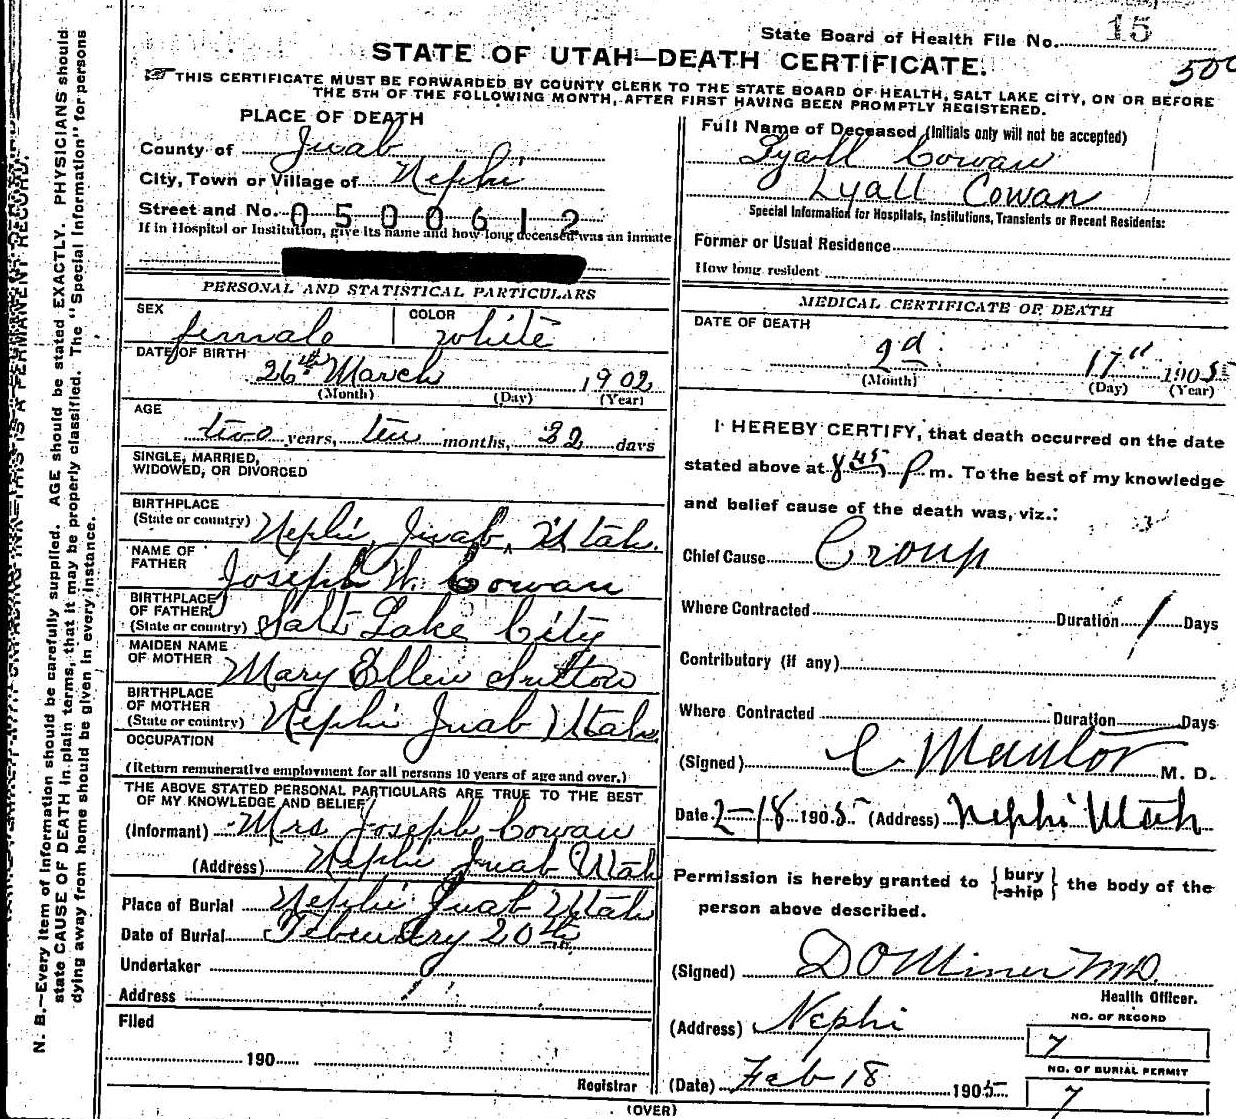 State Board of Health File No. 15
STATE OF UTAH—DEATH CERTIFICATE.
500
THIS CERTIFICATE MUST BE FORWARDED BY COUNTY CLERK TO THE STATE BOARD OF HEALTH, SALT LAKE CITY, ON OR BEFORE
THE 5TH OF THE FOLLOWING MONTH, AFTER FIRST HAVING BEEN PROMPTLY REGISTERED.
PLACE OF DEATH
County of Juab
City, Town or Village of Nephi
Street and No. 0500612
If in Hospital or Institution, give its name and how long deceased was an inmate
PERSONAL AND STATISTICAL PARTICULARS
SEX female COLOR white
DATE OF BIRTH
26th March 1902
(Month) (Day) (Year)
AGE
two years, ten months, 22 days
SINGLE, MARRIED,
WIDOWED, OR DIVORCED
BIRTHPLACE
(State or country) Nephi, Juab, Utah.
NAME OF
FATHER Joseph W. Cowan
BIRTHPLACE
OF FATHER
(State or country) Salt Lake City
MAIDEN NAME
OF MOTHER Mary Ellen Sutton
BIRTHPLACE
OF MOTHER
(State or country) Nephi Juab Utah
OCCUPATION
(Return remunerative employment for all persons 10 years of age and over.)
THE ABOVE STATED PERSONAL PARTICULARS ARE TRUE TO THE BEST
OF MY KNOWLEDGE AND BELIEF
(Informant) Mrs Joseph Cowan
(Address) Nephi Juab Utah
Place of Burial Nephi Juab Utah
Date of Burial February 20th
Undertaker
Address
Filed
190
Registrar
Full Name of Deceased (Initials only will not be accepted)
Lyall Cowan
Lyall Cowan
Special Information for Hospitals, Institutions, Transients or Recent Residents:
Former or Usual Residence
How long resident
MEDICAL CERTIFICATE OF DEATH
DATE OF DEATH
2d 17" 1905
(Month) (Day) (Year)
I HEREBY CERTIFY, that death occurred on the date
stated above at 8 45 P m. To the best of my knowledge
and belief cause of the death was, viz.:
Chief Cause Croup
Where Contracted Duration 1 Days
Contributory (if any)
Where Contracted Duration Days
(Signed) M. D.
Date 2-18 1905 (Address) Nephi Utah
Permission is hereby granted to {bury ship} the body of the
person above described.
(Signed) D O Miner MD.
Health Officer.
(Address) Nephi
NO. OF RECORD
7
NO. OF BURIAL PERMIT
7
(Date) Feb 18 1905
(OVER)
N. B.—Every item of information should be carefully supplied. AGE should be stated EXACTLY. PHYSICIANS should
state CAUSE OF DEATH in plain terms, that it may be properly classified. The "Special Information" for persons
dying away from home should be given in every instance.